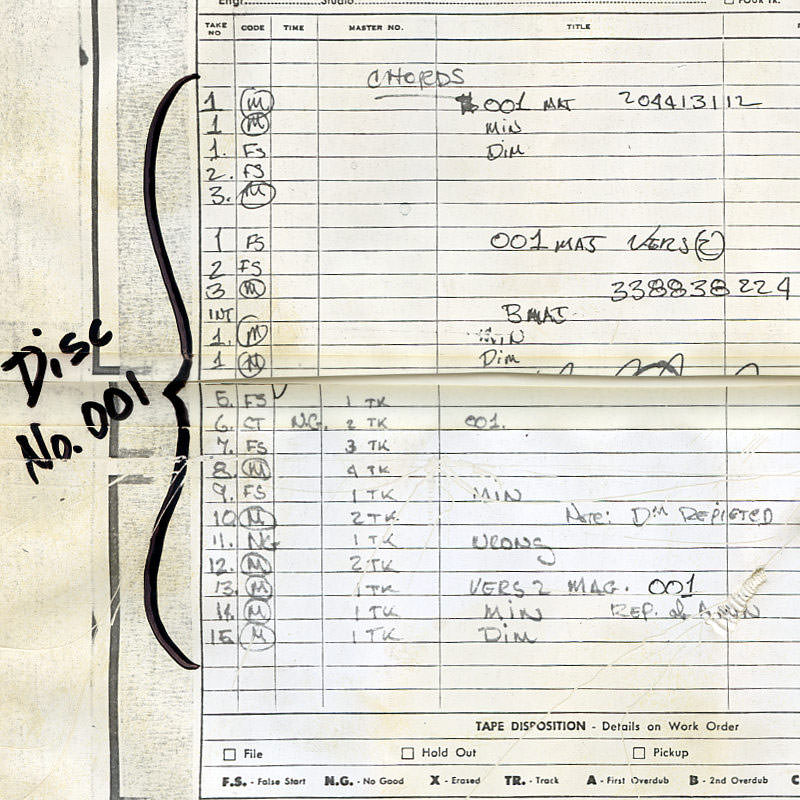 Engr. Studio
TAKE NO CODE TIME MASTER NO. TITLE
CHORDS
1 M 001 MAJ 204413112
1 M MIN
1. FS DIM
2. FS
3. M
1 FS 001 MAJ VERS 2
2 FS
3 M 338838 224
INT B MAJ
1. M MIN
1 M DIM
Disc
No. 001
5. FS 1 TK
6. CT N.G. 2 TK 001.
7. FS 3 TK
8 M 4 TK
9. FS 1 TK MIN
10 M 2 TK. Note: DIM REPEATED
11. NG 1 TK WRONG
12. M 2 TK
13. M 1 TK VERS 2 MAG. 001
14. M 1 TK MIN REP. of A MIN
15 M 1 TK DIM
TAPE DISPOSITION - Details on Work Order
File Hold Out Pickup
F.S. - False Start N.G. - No Good X - Erased TR. - Track A - First Overdub B - 2nd Overdub